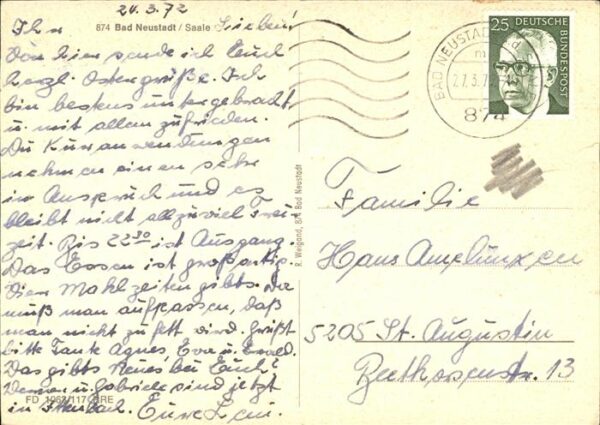 24.3.72
874 Bad Neustadt / Saale
Ihr Lieben!
Von hier sende ich Euch
herzl. Ostergrüße. Ich
bin bestens untergebracht
u. mit allem zufrieden.
Die Kuranwendungen
nehmen einen sehr
in Anspruch und es
bleibt nicht allzuviel Frei-
zeit. Bis 22 30 ist Ausgang.
Das Essen ist großartig.
Vier Mahlzeiten gibts. Da
muß man aufpassen, daß
man nicht zu fett wird. Grüßt
bitte Tante Agnes, Eva u. Ewald.
Was gibts Neues bei Euch?
u. Gabriele sind jetzt
in Ittenbach. Eure
FD 1063/117
R. Weigand, 874 Bad Neustadt
25 DEUTSCHE
BUNDESPOST
BAD NEUSTADT
874
Familie
Hans Amelunxen
5205 St. Augustin
Beethovenstr. 13